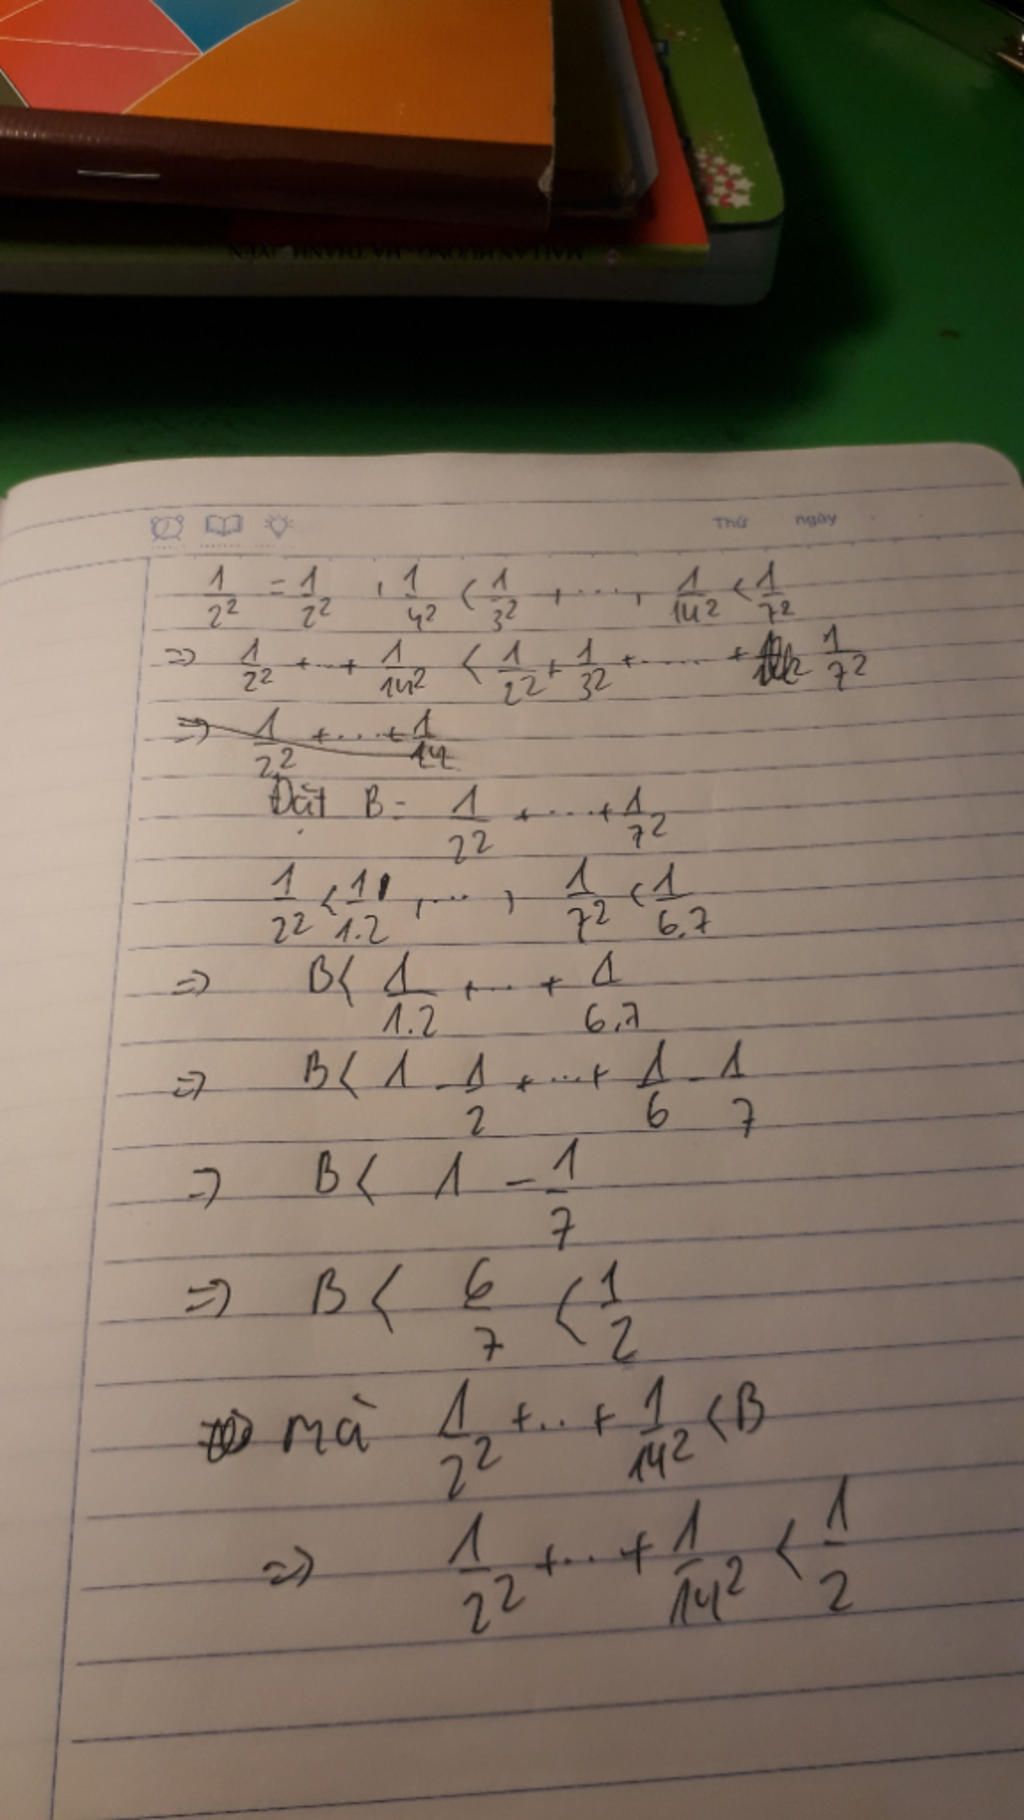 Thứ ngày
1/2² = 1/2² , 1/4² < 1/3² , ...., 1/14² < 1/7²
=> 1/2² + ... + 1/14² < 1/2² + 1/3² + ..... + 1/7²
=> 1/2² + .... + 1/14
Đặt B = 1/2² + .... + 1/7²
1/2² < 1/1.2 , .... , 1/7² < 1/6.7
=> B < 1/1.2 + ... + 1/6.7
=> B < 1 - 1/2 + ... + 1/6 - 1/7
=> B < 1 - 1/7
=> B < 6/7 < 1/2
mà 1/2² + ... + 1/14² < B
=> 1/2² + ... + 1/14² < 1/2